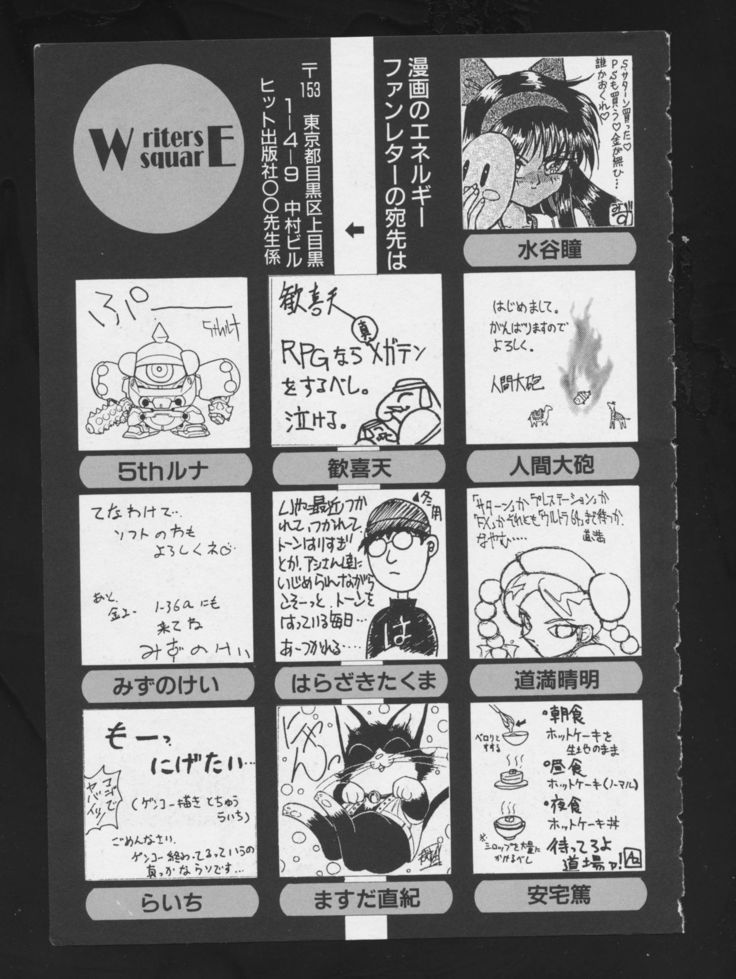 Writers
squarE
漫画のエネルギー
ファンレターの宛先は
〒153 東京都目黒区上目黒
1―4―9 中村ビル
ヒット出版社〇〇先生係
S.サターン買った♡
PSも買う♡金が無ひ…
誰かおくれ♡
水谷瞳
ぷぺ――
5thルナ
5thルナ
歓喜天
真
RPGならメガテン
をするべし。
泣ける。
歓喜天
はじめまして。
がんばりますので
よろしく。
人間大砲
人間大砲
てなわけで…
ソフトのわも
よろしくネ♡
あと、
金ユー 1-36aにも
来てね
みずのけい
みずのけい
いや最近つか
れて、つかれて、
トーンはりすぎ
とか、アシさん達に
いじめられながら
こそーっと、トーンを
はっている毎日…
あーつかれる…
冬用
は
はらざきたくま
「サターン」か「プレステーション」か
「FX」かそれとも「ウルトラ64」まで待つか、
なやむ…… 道満
道満晴明
もーっ
にげたい…
ヤバイッ!
(ゲンコー描きとちゅう
らいち)
ごめんなさい、
ゲンコー終わってるっていうの
真っかなウソです…
らいち
にゃん
ますだ直紀
ペロリと
すする
•朝食
ホットケーキを
生地のまま
•昼食
ホットケーキ(ノーマル)
•夜食
ホットケーキ丼
※シロップを大量に
かけるべし
待ってろよ
道場ァ!
安宅篤